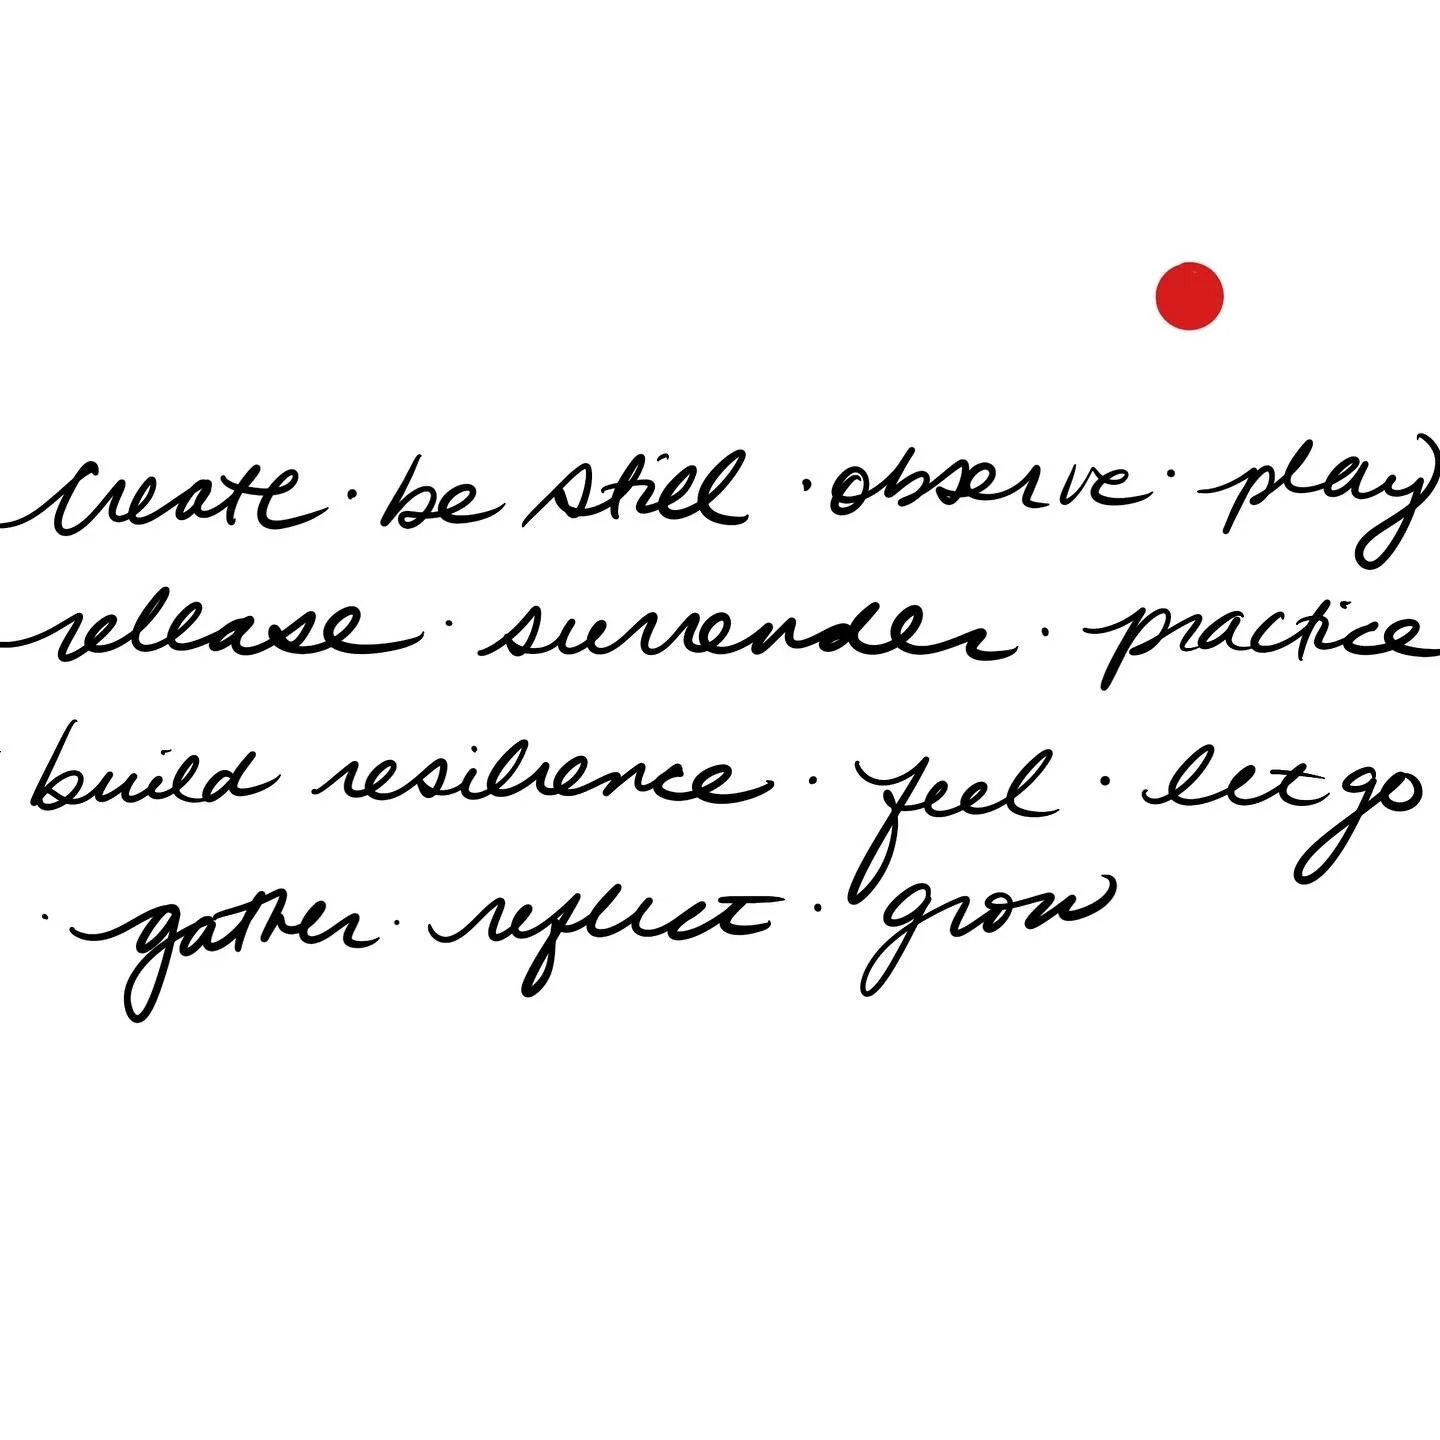 create · be still · observe · play
release · surrender · practice
· build resilience · feel · let go
· gather · reflect · grow